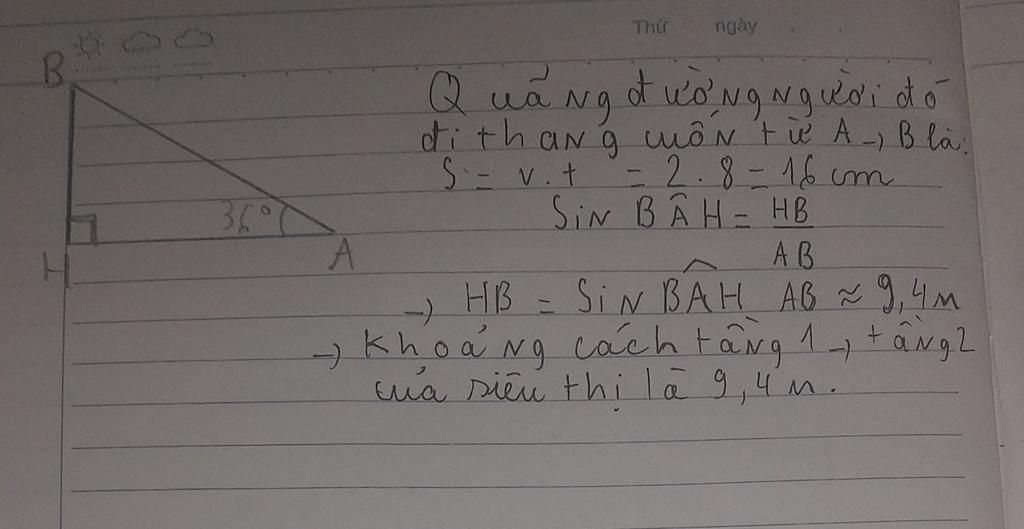 Thứ ngày
B
Quãng đường người đó
đi thang cuốn từ A → B là:
S = v.t = 2.8 = 16 cm
Sin BÂH = HB
AB
36°
H
A
→ HB = Sin BÂH AB ≈ 9,4m
→ Khoảng cách tầng 1 → tầng 2
của siêu thị là 9,4 m.